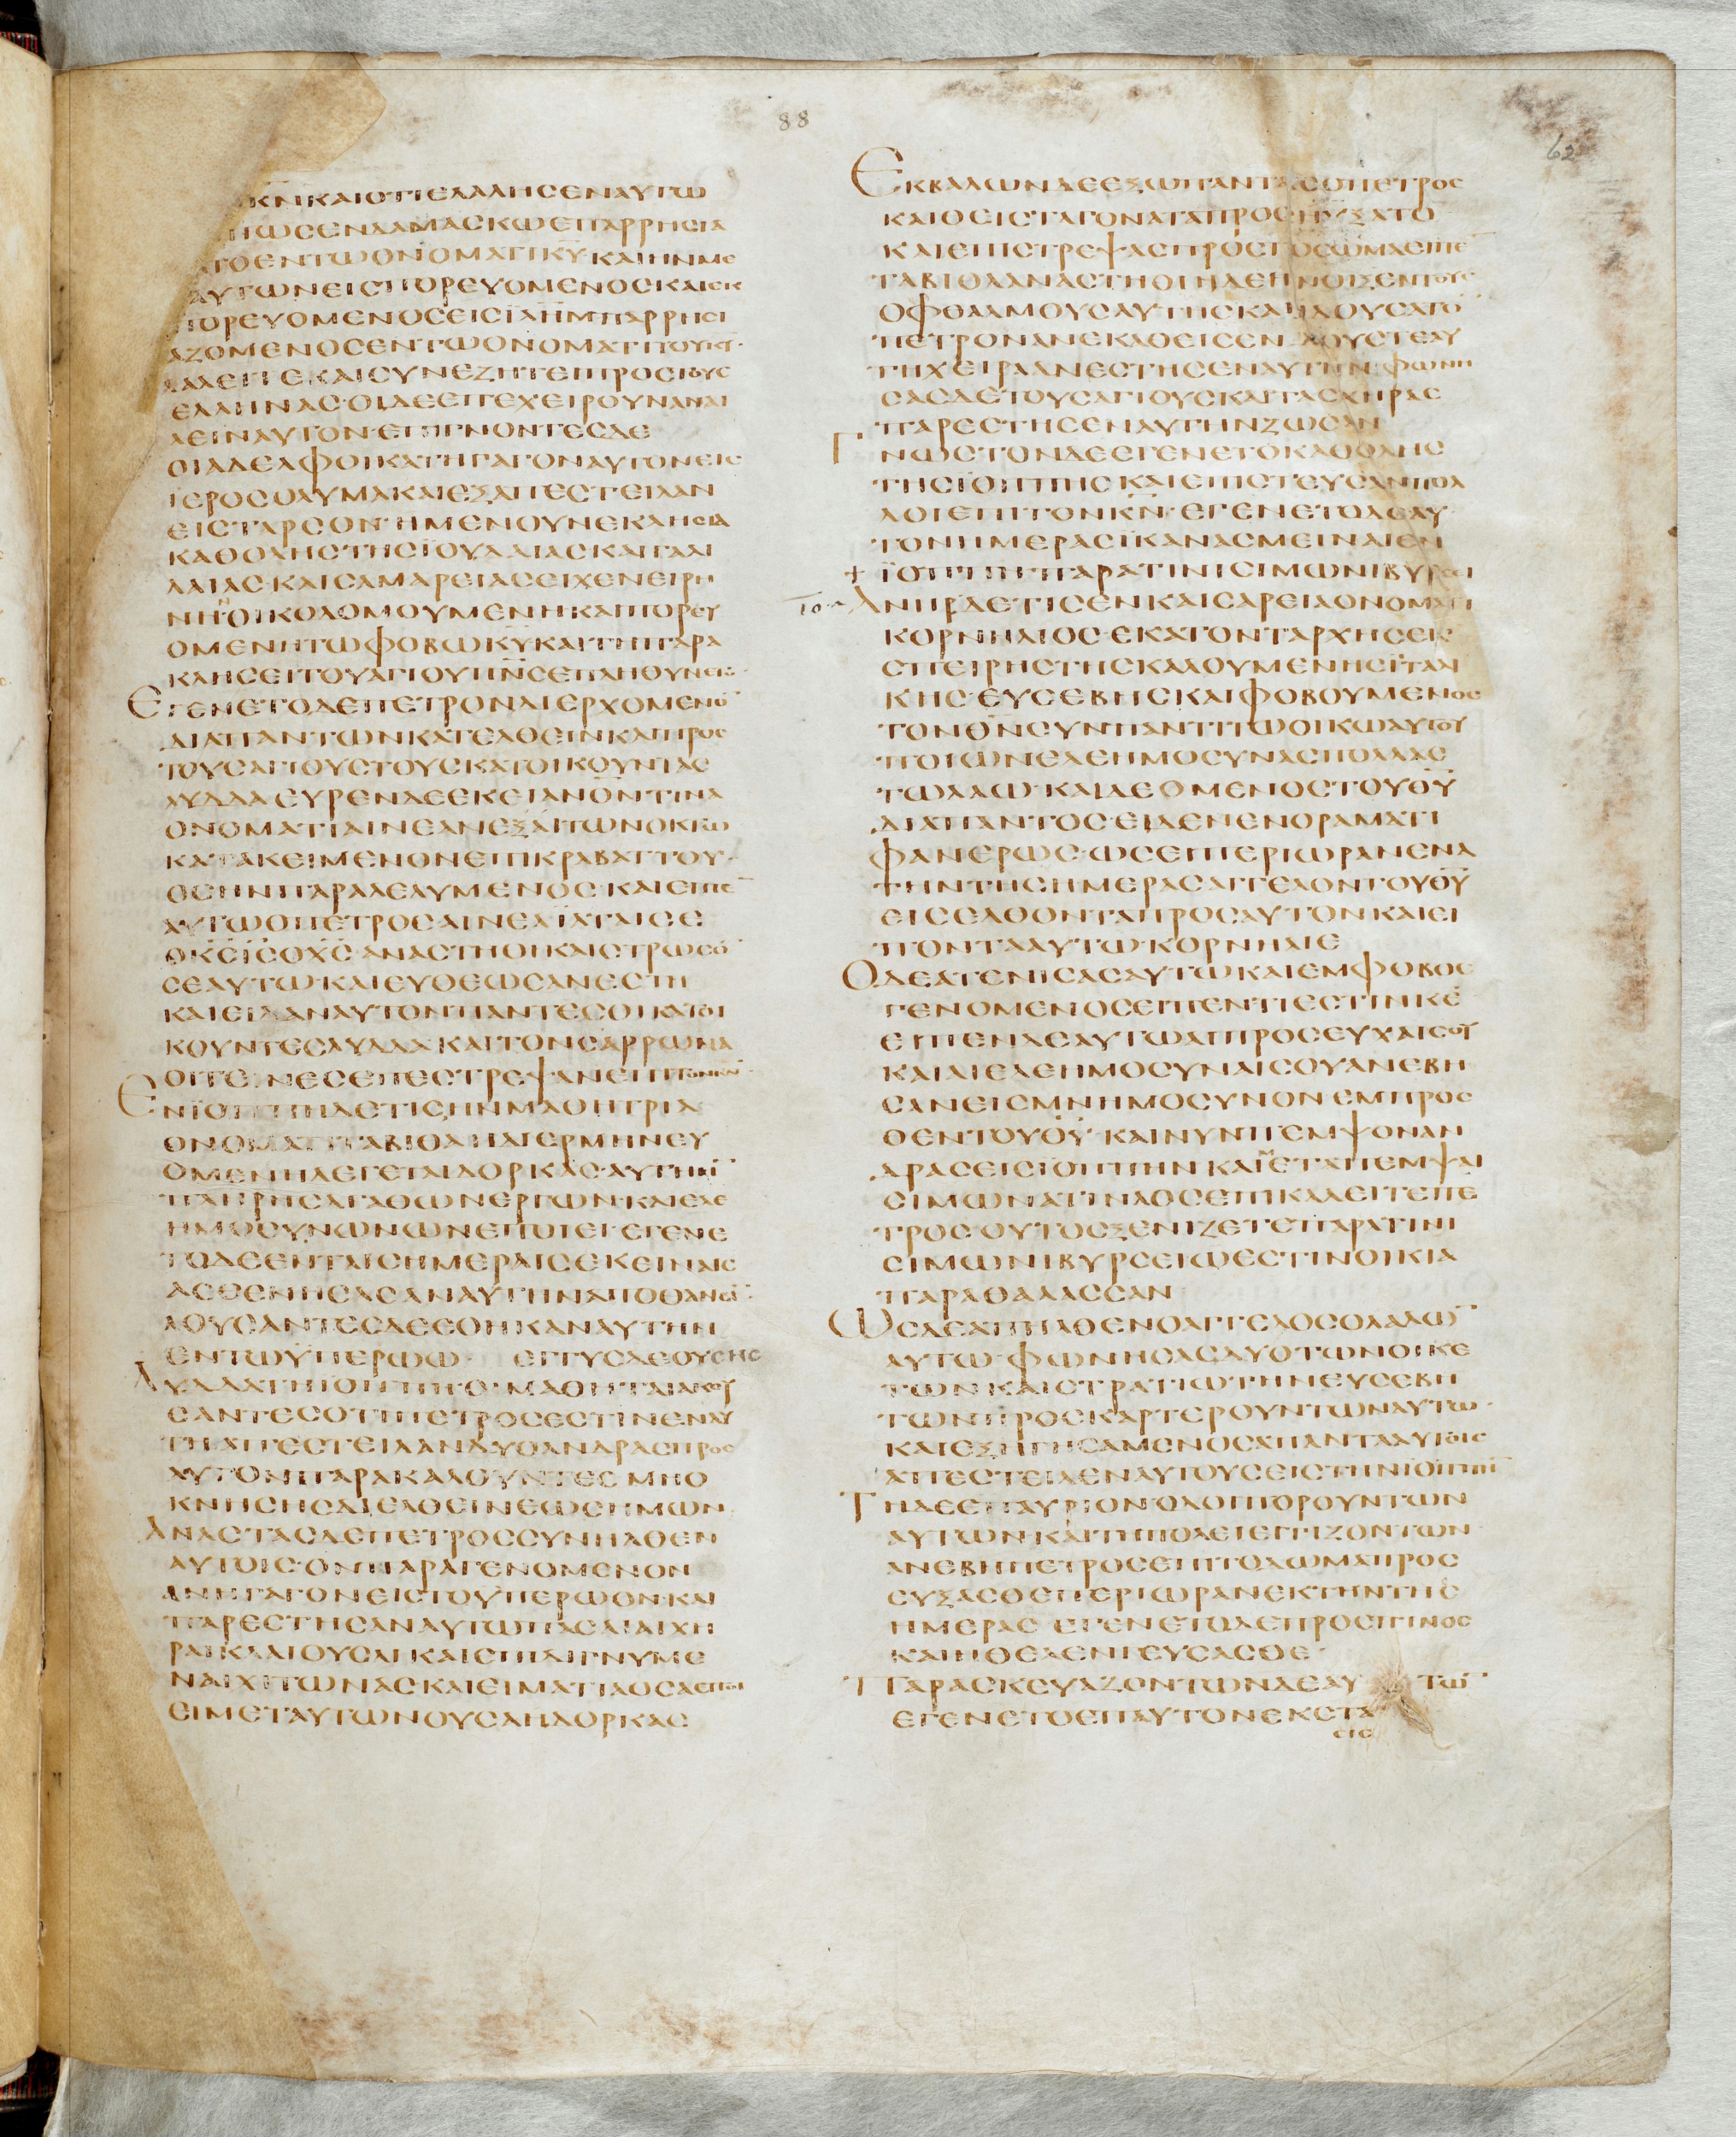 88
62
ΚΝ ΚΑΙ ΟΤΙ ΕΛΑΛΗΣΕΝ ΑΥΤΩ
ΠΩΣ ΕΝ ΔΑΜΑΣΚΩ ΕΠΑΡΡΗΣΙΑ
ΣΑΤΟ ΕΝ ΤΩ ΟΝΟΜΑΤΙ ΚΥ ΚΑΙ ΗΝ ΜΕ
ΑΥΤΩΝ ΕΙΣΠΟΡΕΥΟΜΕΝΟΣ ΚΑΙ ΕΚ
ΠΟΡΕΥΟΜΕΝΟΣ ΕΙΣ ΪΛΗΜ ΠΑΡΡΗΣΙ
ΑΖΟΜΕΝΟΣ ΕΝ ΤΩ ΟΝΟΜΑΤΙ ΤΟΥ ΚΥ·
ΕΛΑΛΕΙ ΤΕ ΚΑΙ ΣΥΝΕΖΗΤΕΙ ΠΡΟΣ ΤΟΥΣ
ΕΛΛΗΝΑΣ· ΟΙ ΔΕ ΕΠΕΧΕΙΡΟΥΝ ΑΝΑΙ
ΛΕΙΝ ΑΥΤΟΝ· ΕΠΙΓΝΟΝΤΕΣ ΔΕ
ΟΙ ΑΔΕΛΦΟΙ ΚΑΤΗΓΑΓΟΝ ΑΥΤΟΝ ΕΙΣ
ΪΕΡΟΣΟΛΥΜΑ ΚΑΙ ΕΞΑΠΕΣΤΕΙΛΑΝ
ΕΙΣ ΤΑΡΣΟΝ· Η ΜΕΝ ΟΥΝ ΕΚΛΗΣΙΑ
ΚΑΘ ΟΛΗΣ ΤΗΣ ΪΟΥΔΑΙΑΣ ΚΑΙ ΓΑΛΙ
ΛΑΙΑΣ· ΚΑΙ ΣΑΜΑΡΕΙΑΣ ΕΙΧΕΝ ΕΙΡΗ
ΝΗΝ ΟΙΚΟΔΟΜΟΥΜΕΝΗ ΚΑΙ ΠΟΡΕΥ
ΟΜΕΝΗ ΤΩ ΦΟΒΩ ΚΥ ΚΑΙ ΤΗ ΠΑΡΑ
ΚΛΗΣΕΙ ΤΟΥ ΑΓΙΟΥ ΠΝΣ ΕΠΛΗΘΥΝΕΤΟ·
ΕΓΕΝΕΤΟ ΔΕ ΠΕΤΡΟΝ ΔΙΕΡΧΟΜΕΝΟ̅
ΔΙΑ ΠΑΝΤΩΝ ΚΑΤΕΛΘΕΙΝ ΚΑΙ ΠΡΟΣ
ΤΟΥΣ ΑΓΙΟΥΣ ΤΟΥΣ ΚΑΤΟΙΚΟΥΝΤΑΣ
ΛΥΔΔΑ ΕΥΡΕΝ ΔΕ ΕΚΕΙ ΑΝΟΝ ΤΙΝΑ
ΟΝΟΜΑΤΙ ΑΙΝΕΑΝ ΕΞ ΑΙΤΩΝ ΟΚΤΩ
ΚΑΤΑΚΕΙΜΕΝΟΝ ΕΠΙ ΚΡΑΒΑΤΤΟΥ·
ΟΣ ΗΝ ΠΑΡΑΛΕΛΥΜΕΝΟΣ· ΚΑΙ ΕΙΠΕ̅
ΑΥΤΩ Ο ΠΕΤΡΟΣ ΑΙΝΕΑ ΪΑΤΑΙ ΣΕ
Ο ΚΣ ΙΣ Ο ΧΣ· ΑΝΑΣΤΗΘΙ ΚΑΙ ΣΤΡΩΣΟ̅
ΣΕΑΥΤΩ· ΚΑΙ ΕΥΘΕΩΣ ΑΝΕΣΤΗ
ΚΑΙ ΕΙΔΑΝ ΑΥΤΟΝ ΠΑΝΤΕΣ ΟΙ ΚΑΤΟΙ
ΚΟΥΝΤΕΣ ΛΥΔΔΑ ΚΑΙ ΤΟΝ ΣΑΡΡΩΝΑ
ΟΙΤΕΙΝΕΣ ΕΠΕΣΤΡΕΨΑΝ ΕΠΙ ΤΟΝ ΚΝ
ΕΝ ΪΟΠΠΗ ΔΕ ΤΙΣ ΗΝ ΜΑΘΗΤΡΙΑ
ΟΝΟΜΑΤΙ ΤΑΒΙΘΑ Η ΔΙΕΡΜΗΝΕΥ
ΟΜΕΝΗ ΛΕΓΕΤΑΙ ΔΟΡΚΑΣ· ΑΥΤΗ Η̅
ΠΛΗΡΗΣ ΑΓΑΘΩΝ ΕΡΓΩΝ· ΚΑΙ ΕΛΕ
ΗΜΟΣΥΝΩΝ ΩΝ ΕΠΟΙΕΙ· ΕΓΕΝΕ
ΤΟ ΔΕ ΕΝ ΤΑΙΣ ΗΜΕΡΑΙΣ ΕΚΕΙΝΑΙΣ
ΑΣΘΕΝΗΣΑΣΑΝ ΑΥΤΗΝ ΑΠΟΘΑΝΕΙ̅·
ΛΟΥΣΑΝΤΕΣ ΔΕ ΕΘΗΚΑΝ ΑΥΤΗΝ
ΕΝ ΤΩ ΫΠΕΡΩΩ· ΕΓΓΥΣ ΔΕ ΟΥΣΗΣ
ΛΥΔΔΑΣ ΤΗ ΪΟΠΠΗ· ΟΙ ΜΑΘΗΤΑΙ ΑΚΟΥ
ΣΑΝΤΕΣ ΟΤΙ ΠΕΤΡΟΣ ΕΣΤΙΝ ΕΝ ΑΥ
ΤΗ ΑΠΕΣΤΕΙΛΑΝ ΔΥΟ ΑΝΔΡΑΣ ΠΡΟΣ
ΑΥΤΟΝ ΠΑΡΑΚΑΛΟΥΝΤΕΣ ΜΗ Ο
ΚΝΗΣΗΣ ΔΙΕΛΘΕΙΝ ΕΩΣ ΗΜΩΝ
ΑΝΑΣΤΑΣ ΔΕ ΠΕΤΡΟΣ ΣΥΝΗΛΘΕΝ
ΑΥΤΟΙΣ· ΟΝ ΠΑΡΑΓΕΝΟΜΕΝΟΝ
ΑΝΗΓΑΓΟΝ ΕΙΣ ΤΟ ΫΠΕΡΩΟΝ· ΚΑΙ
ΠΑΡΕΣΤΗΣΑΝ ΑΥΤΩ ΠΑΣΑΙ ΑΙ ΧΗ
ΡΑΙ ΚΛΑΙΟΥΣΑΙ ΚΑΙ ΕΠΙΔΙΓΝΥΜΕ
ΝΑΙ ΧΙΤΩΝΑΣ ΚΑΙ ΕΙΜΑΤΙΑ ΟΣΑ ΕΠΟΙ
ΕΙ ΜΕΤ ΑΥΤΩΝ ΟΥΣΑ Η ΔΟΡΚΑΣ
ΕΚΒΑΛΩΝ ΔΕ ΕΞΩ ΠΑΝΤΑΣ Ο ΠΕΤΡΟΣ
ΚΑΙ ΘΕΙΣ ΤΑ ΓΟΝΑΤΑ ΠΡΟΣΗΥΞΑΤΟ
ΚΑΙ ΕΠΙΣΤΡΕΨΑΣ ΠΡΟΣ ΤΟ ΣΩΜΑ ΕΙΠΕ̅
ΤΑΒΙΘΑ ΑΝΑΣΤΗΘΙ Η ΔΕ ΗΝΟΙΞΕΝ ΤΟΥΣ
ΟΦΘΑΛΜΟΥΣ ΑΥΤΗΣ ΚΑΙ ΙΔΟΥΣΑ ΤΟ̅
ΠΕΤΡΟΝ ΑΝΕΚΑΘΕΙΣΕΝ ΔΟΥΣ ΤΕ ΑΥ
ΤΗ ΧΕΙΡΑ ΑΝΕΣΤΗΣΕΝ ΑΥΤΗΝ· ΦΩΝΗ
ΣΑΣ ΔΕ ΤΟΥΣ ΑΓΙΟΥΣ ΚΑΙ ΤΑΣ ΧΗΡΑΣ
ΠΑΡΕΣΤΗΣΕΝ ΑΥΤΗΝ ΖΩΣΑΝ
ΓΝΩΣΤΟΝ ΔΕ ΕΓΕΝΕΤΟ ΚΑΘ ΟΛΗΣ
ΤΗΣ ΪΟΠΠΗΣ ΚΑΙ ΕΠΙΣΤΕΥΣΑΝ ΠΟΛ
ΛΟΙ ΕΠΙ ΤΟΝ ΚΝ· ΕΓΕΝΕΤΟ ΔΕ ΑΥ
ΤΟΝ ΗΜΕΡΑΣ ΪΚΑΝΑΣ ΜΕΙΝΑΙ ΕΝ
+ ΪΟΠΠΗ ΠΑΡΑ ΤΙΝΙ ΣΙΜΩΝΙ ΒΥΡΣΕΙ
ΑΝΗΡ ΔΕ ΤΙΣ ΕΝ ΚΑΙΣΑΡΕΙΑ ΟΝΟΜΑΤΙ
ΚΟΡΝΗΛΙΟΣ· ΕΚΑΤΟΝΤΑΡΧΗΣ ΕΚ
ΣΠΕΙΡΗΣ ΤΗΣ ΚΑΛΟΥΜΕΝΗΣ ΪΤΑΛΙ
ΚΗΣ· ΕΥΣΕΒΗΣ ΚΑΙ ΦΟΒΟΥΜΕΝΟΣ
ΤΟΝ ΘΝ ΣΥΝ ΠΑΝΤΙ ΤΩ ΟΙΚΩ ΑΥΤΟΥ
ΠΟΙΩΝ ΕΛΕΗΜΟΣΥΝΑΣ ΠΟΛΛΑΣ
ΤΩ ΛΑΩ· ΚΑΙ ΔΕΟΜΕΝΟΣ ΤΟΥ ΘΥ
ΔΙΑ ΠΑΝΤΟΣ· ΕΙΔΕΝ ΕΝ ΟΡΑΜΑΤΙ
ΦΑΝΕΡΩΣ· ΩΣΕΙ ΠΕΡΙ ΩΡΑΝ ΕΝΑ
ΤΗΝ ΤΗΣ ΗΜΕΡΑΣ ΑΓΓΕΛΟΝ ΤΟΥ ΘΥ
ΕΙΣΕΛΘΟΝΤΑ ΠΡΟΣ ΑΥΤΟΝ ΚΑΙ ΕΙ
ΠΟΝΤΑ ΑΥΤΩ· ΚΟΡΝΗΛΙΕ
Ο ΔΕ ΑΤΕΝΙΣΑΣ ΑΥΤΩ ΚΑΙ ΕΜΦΟΒΟΣ
ΓΕΝΟΜΕΝΟΣ ΕΙΠΕΝ ΤΙ ΕΣΤΙΝ ΚΕ
ΕΙΠΕΝ ΔΕ ΑΥΤΩ ΑΙ ΠΡΟΣΕΥΧΑΙ ΣΟΥ
ΚΑΙ ΑΙ ΕΛΕΗΜΟΣΥΝΑΙ ΣΟΥ ΑΝΕΒΗ
ΣΑΝ ΕΙΣ ΜΝΗΜΟΣΥΝΟΝ ΕΜΠΡΟΣ
ΘΕΝ ΤΟΥ ΘΥ· ΚΑΙ ΝΥΝ ΠΕΜΨΟΝ ΑΝ
ΔΡΑΣ ΕΙΣ ΪΟΠΠΗΝ ΚΑΙ ΜΕΤΑΠΕΜΨΑΙ
ΣΙΜΩΝΑ ΤΙΝΑ ΟΣ ΕΠΙΚΑΛΕΙΤΕ ΠΕ
ΤΡΟΣ· ΟΥΤΟΣ ΞΕΝΙΖΕΤΕ ΠΑΡΑ ΤΙΝΙ
ΣΙΜΩΝΙ ΒΥΡΣΕΙ Ω ΕΣΤΙΝ ΟΙΚΙΑ
ΠΑΡΑ ΘΑΛΑΣΣΑΝ
ΩΣ ΔΕ ΑΠΗΛΘΕΝ Ο ΑΓΓΕΛΟΣ Ο ΛΑΛΩ̅
ΑΥΤΩ· ΦΩΝΗΣΑΣ ΔΥΟ ΤΩΝ ΟΙΚΕ
ΤΩΝ ΚΑΙ ΣΤΡΑΤΙΩΤΗΝ ΕΥΣΕΒΗ
ΤΩΝ ΠΡΟΣΚΑΡΤΕΡΟΥΝΤΩΝ ΑΥΤΩ·
ΚΑΙ ΕΞΗΓΗΣΑΜΕΝΟΣ ΑΠΑΝΤΑ ΑΥΤΟΙΣ
ΑΠΕΣΤΕΙΛΕΝ ΑΥΤΟΥΣ ΕΙΣ ΤΗΝ ΪΟΠΠΗ̅
ΤΗ ΔΕ ΕΠΑΥΡΙΟΝ ΟΔΟΙΠΟΡΟΥΝΤΩΝ
ΑΥΤΩΝ· ΚΑΙ ΤΗ ΠΟΛΕΙ ΕΓΓΙΖΟΝΤΩΝ
ΑΝΕΒΗ ΠΕΤΡΟΣ ΕΠΙ ΤΟ ΔΩΜΑ ΠΡΟΣ
ΕΥΞΑΣΘΕ ΠΕΡΙ ΩΡΑΝ ΕΚΤΗΝ ΤΗΣ
ΗΜΕΡΑΣ· ΕΓΕΝΕΤΟ ΔΕ ΠΡΟΣΠΙΝΟΣ
ΚΑΙ ΗΘΕΛΕΝ ΓΕΥΣΑΣΘΕ·
ΠΑΡΑΣΚΕΥΑΖΟΝΤΩΝ ΔΕ ΑΥΤΩ̅
ΕΓΕΝΕΤΟ ΕΠ ΑΥΤΟΝ ΕΚΣΤΑ
ΣΙΣ